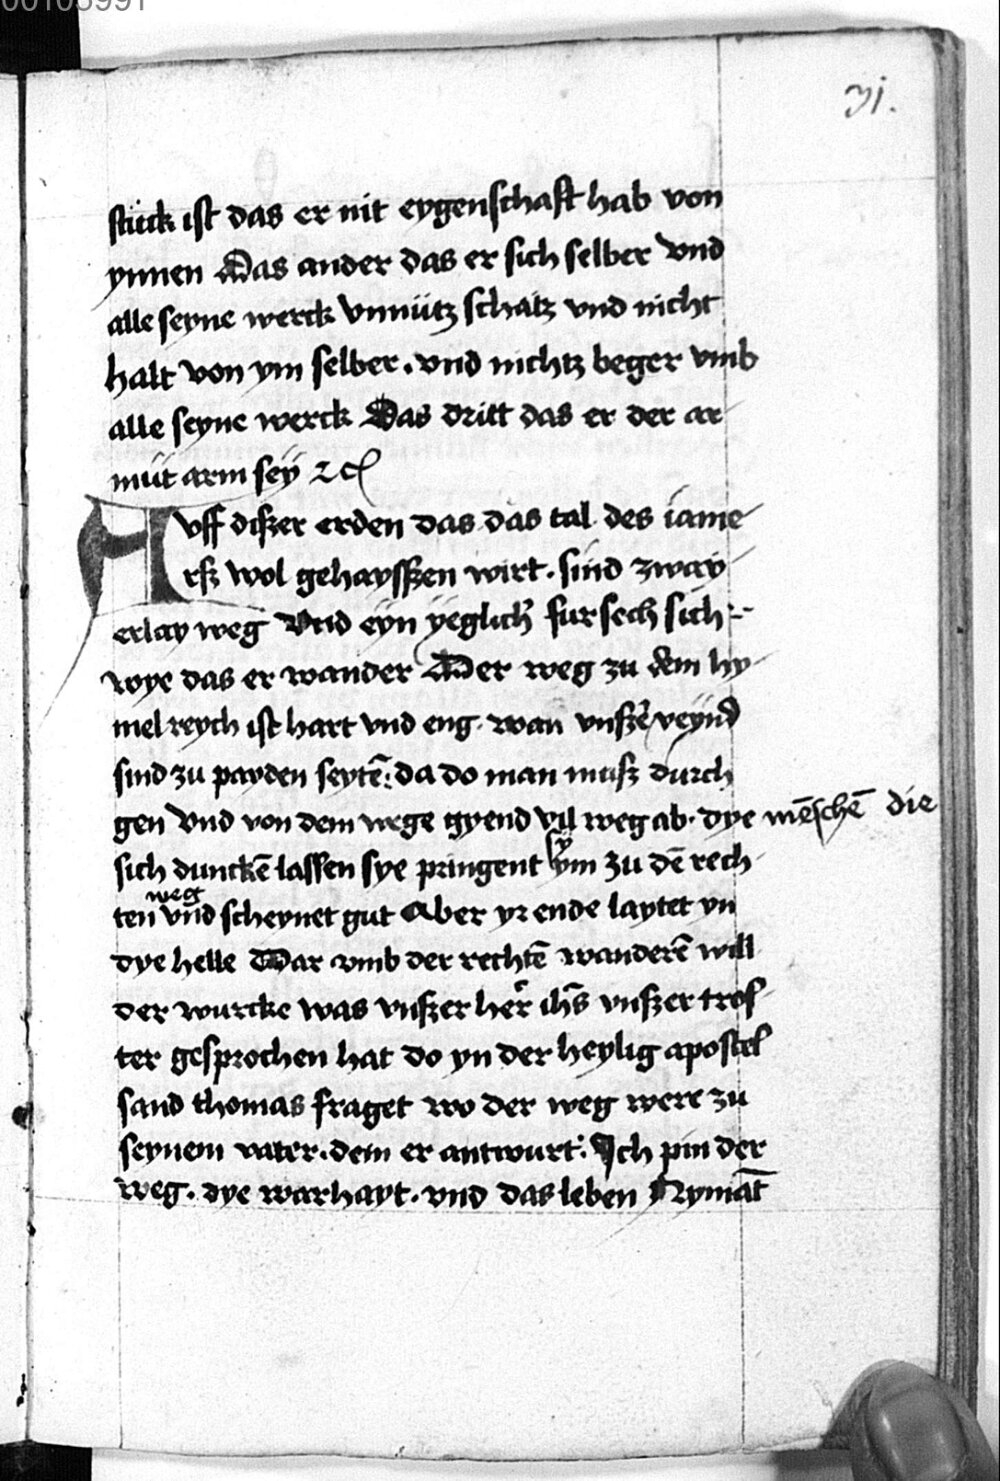 00103991
71.
stück ist das er nit eygenschafft hab von
ynnen Das ander das er sich selber vnd
alle seyne werck vnnütz schatz vnd nicht
halt von ym selber. vnd nichtz beger vmb
alle seyne werck Das dritt das er der ar
müt arm sey ꝛc
Avff diszer erden das das tal des iame
rsz wol gehaysszen wirt. sind zway
erlay weg Vnd eyn yeglich' fur sech sich
wye das er wander Der weg zu dem hy
melreych ist hart vnd eng. wan vnszer veynd
sind zu payden seytē: da do man musz durch
gen vnd von dem wege gyend vil weg ab. dye mēschē die
sich dunckē lassen sye pringent sy ym zu dē rech
weg
ten vnd scheynet gut Aber yr ende laytet yn
dye helle Dar vmb der rechtē wanderē will
der wurcke was vnszer her ihs vnszer tros
ter gesprochen hat do yn der heylig apostel
sand thomas fraget wo der weg were zu
seynem vater. dem er antwurt: Ich pin der
weg. dye warhayt. vnd das leben Nymāt